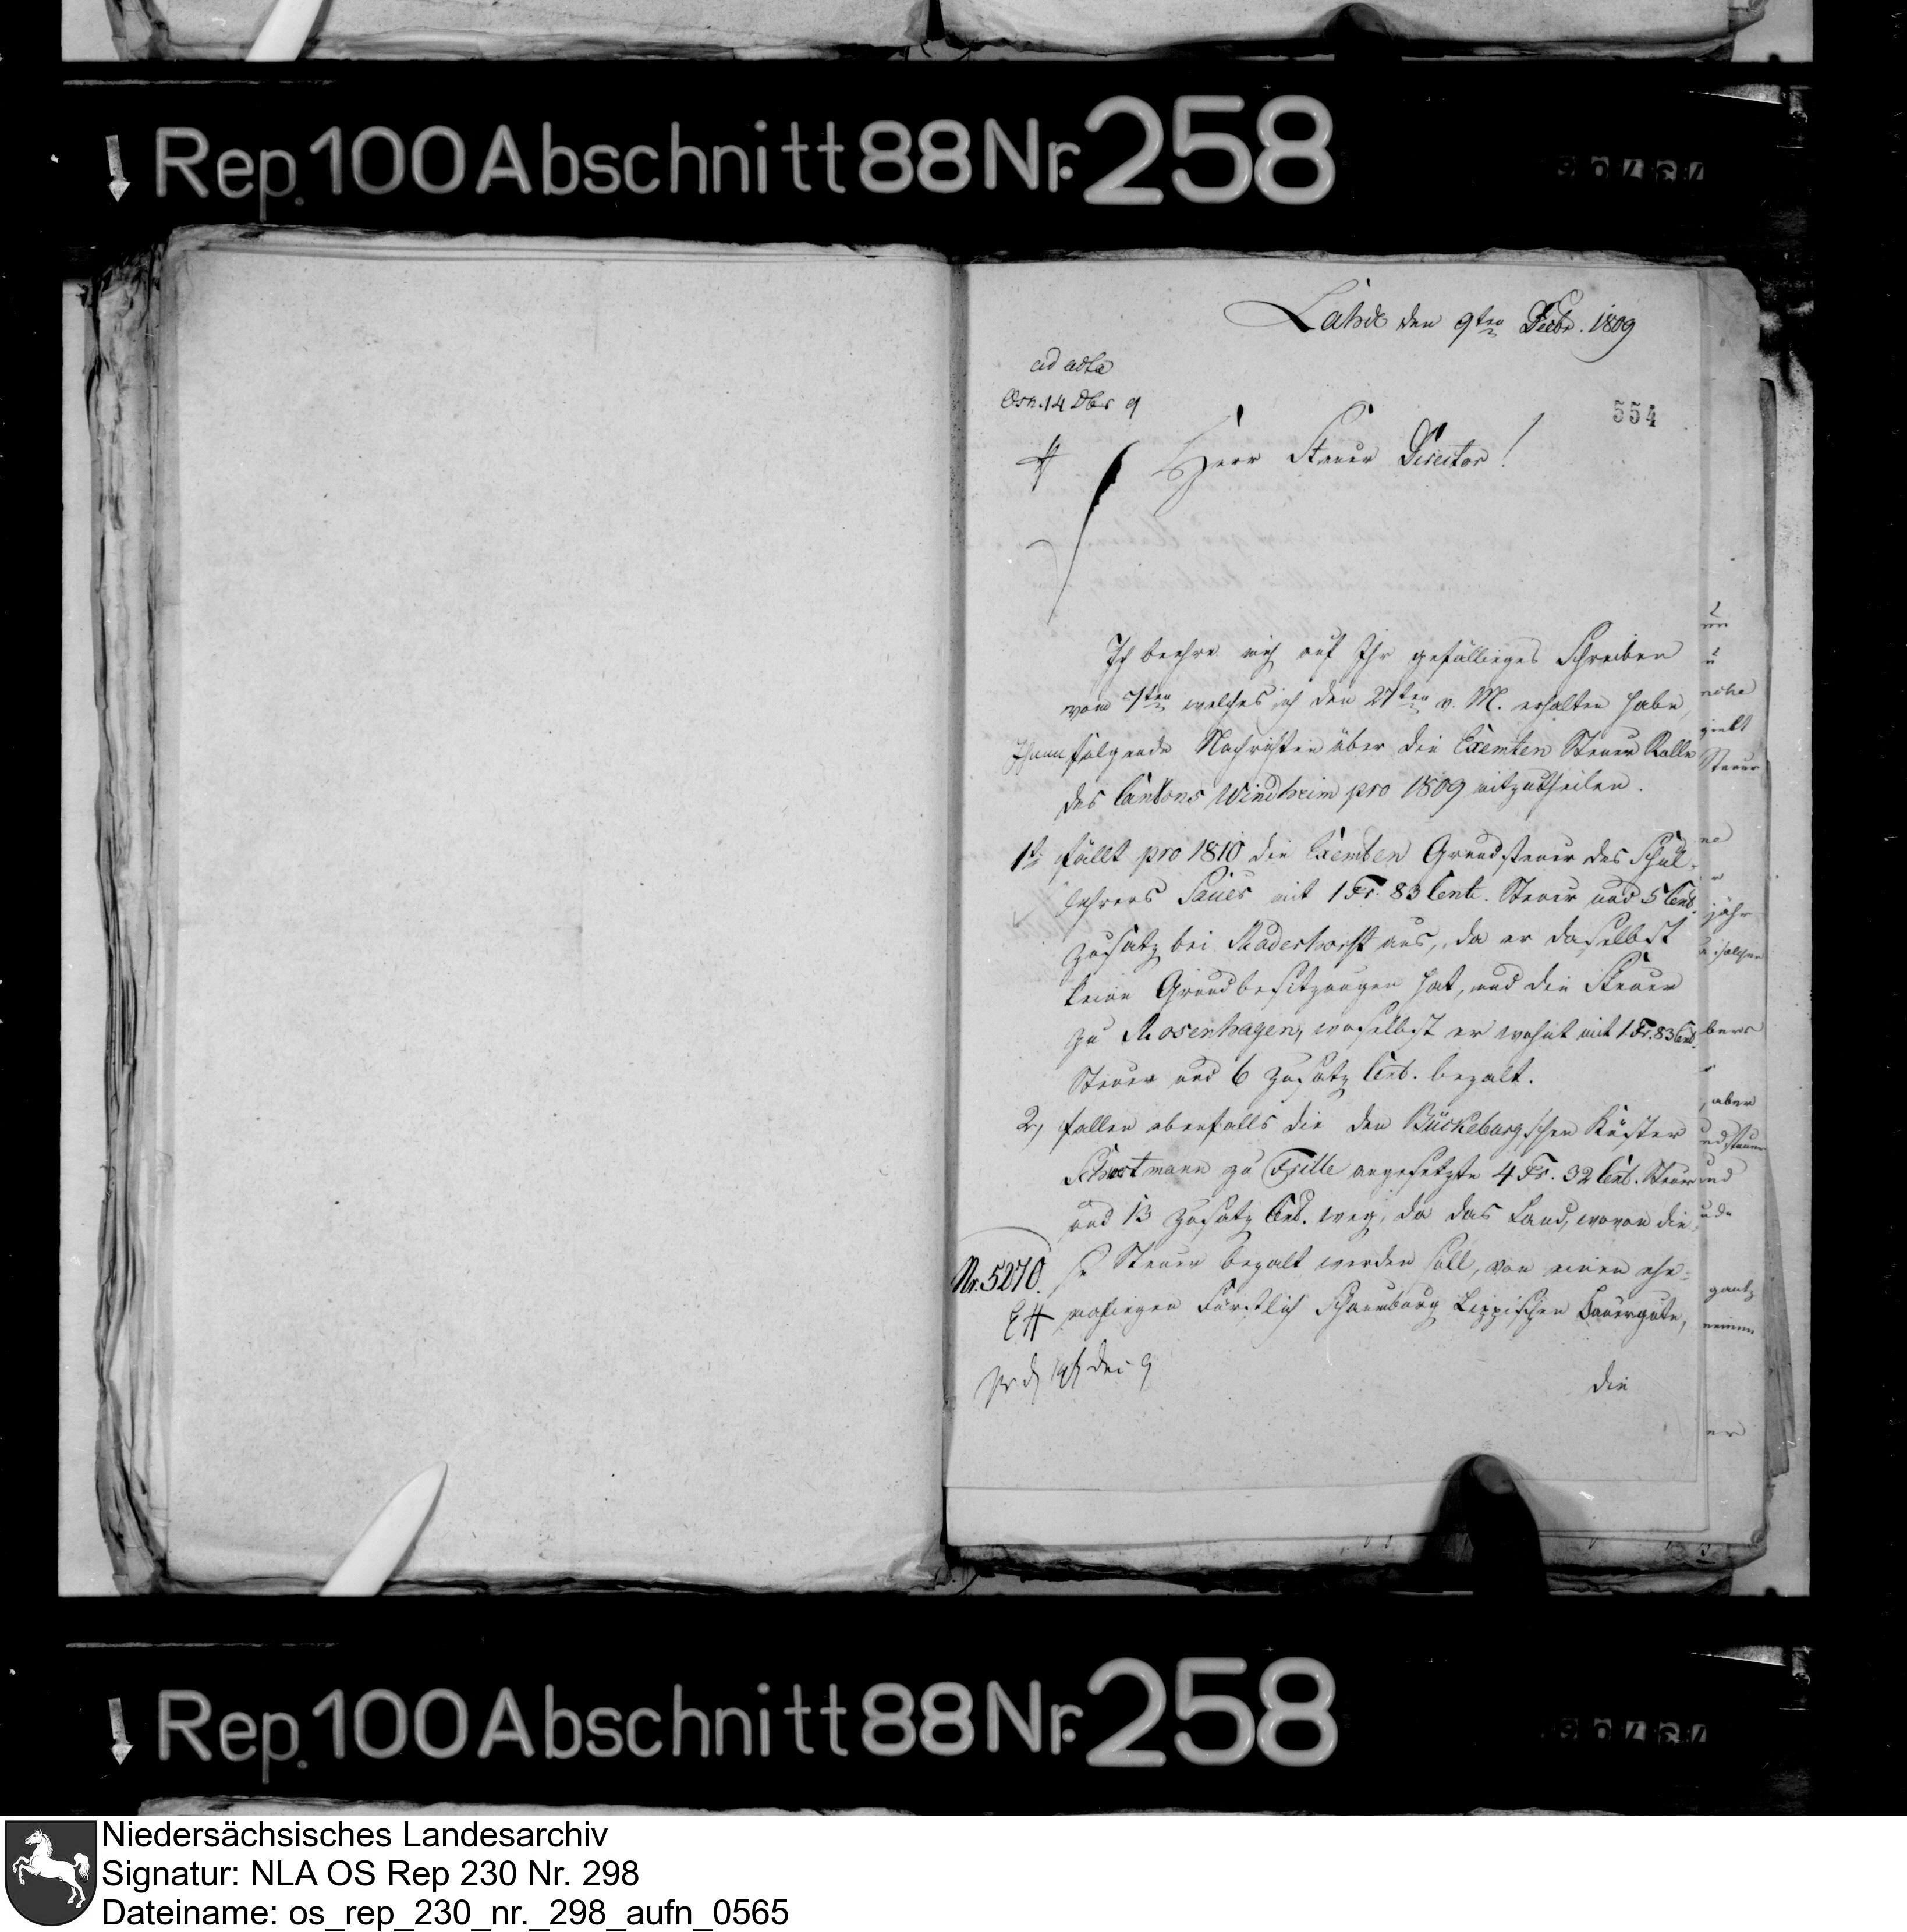 Rep. 100 Abschnitt 88 Nr. 258
Lahde den 9ten Decbr. 1809
ad acta
Osn. 14 Dbr 9
554
Herr Steuer Director!
Ich beehre mich auf Ihr gefälliges Schreiben
vom 7ten welches ich den 27ten v. M. erhalten habe,
Ihnen folgende Nachrichten über die Exemten Steuer Rolle
des Cantons Windheim pro 1809 mitzutheilen.
1st fällt pro 1810 die Exemten Grundsteuer des Schul-
lehrers mit 1 Fr. 83 Cent. Steuer und 5 Cent.
Zusatz bei Raderhorst aus, da er daselbst
keine Grundbesitzungen hat, und die Steuer
zu Rosenhagen, woselbst er wohnt mit 1 Fr. 83 Cent.
Steuer und 6 Zusatz Cent. bezalt.
2, fallen ebenfalls die den Bückeburgschen Küster
zu Frille angesetzte 4 Fr. 32 Cent. Steuer
und 13 Zusatz Cent. weg, da das Land, wovon die-
se Steuer bezalt werden soll, von einen ehe-
mahligen Fürstlich Schaumburg Lippischen Bauergute,
Nr. 5270.
die
Rep. 100 Abschnitt 88 Nr. 258
Niedersächsisches Landesarchiv
Signatur: NLA OS Rep 230 Nr. 298
Dateiname: os_rep_230_nr._298_aufn_0565